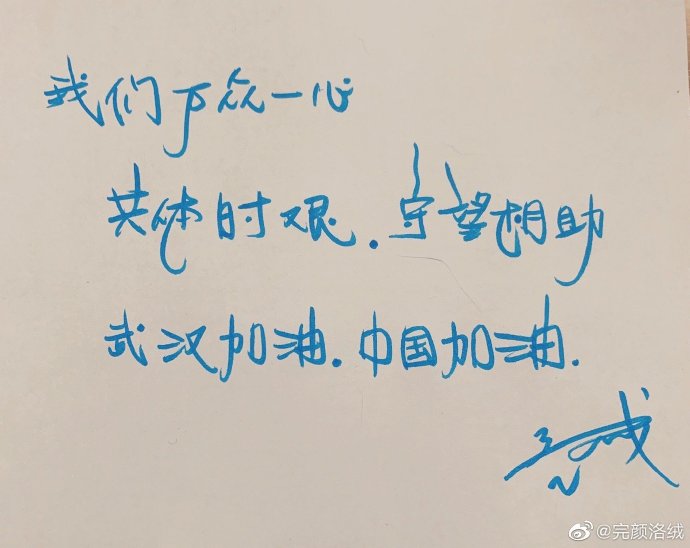 我们万众一心
共体时艰.守望相助
武汉加油.中国加油.
@完颜洛绒